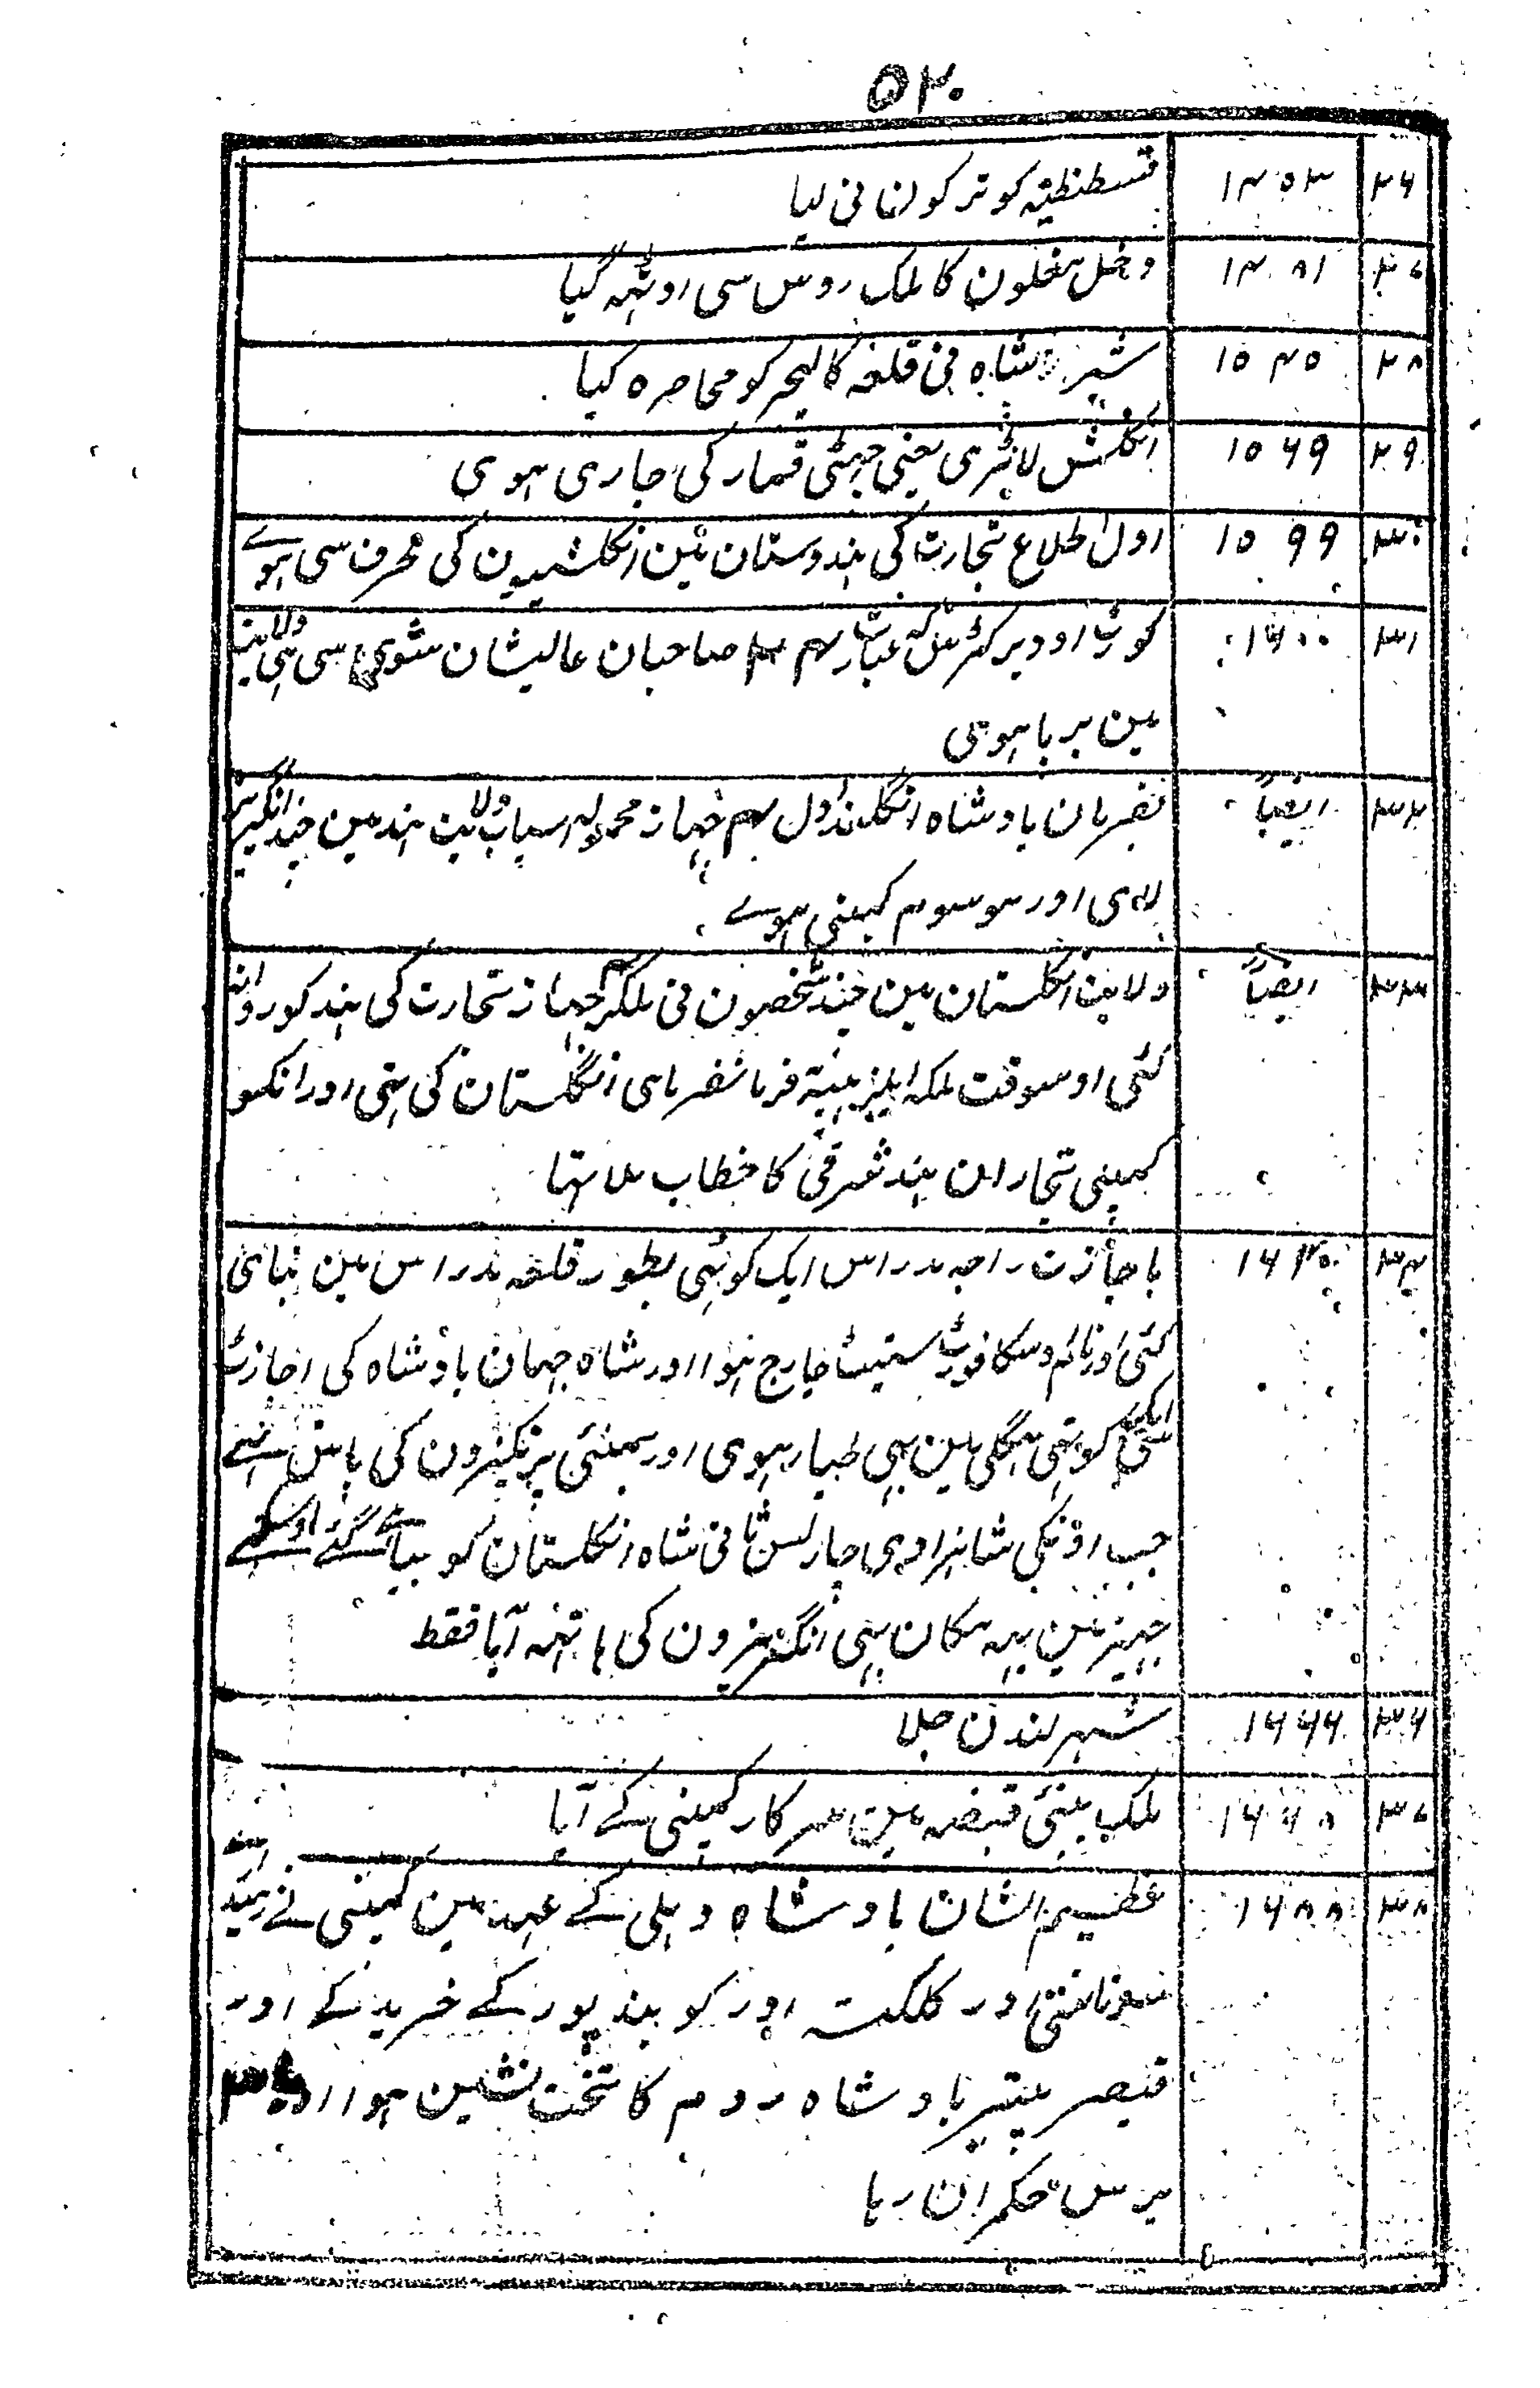 ۵۲۰
۲۶ ۱۴۵۳ قسطنطنیہ کو ترکو لنانی لیا
۲۷ ۱۴۸۱ دخل مغلون کا ملک روس سی اوٹہہ گیا
۲۸ ۱۵۴۵ شیر شاہ نی قلعہ کالنجر کو محاصرہ کیا
۲۹ ۱۵۶۹ انگلش لاٹری یعنی چہٹی قمار کی جاری ہوی
۳۰ ۱۵۹۹ اول اطلاع تجارت کی ہندوستان مین انگلشیون کی طرف سی ہوے
۳۱ ۱۶۰۰ کورٹ اوو دیرکٹرس کہ عبارت ۲۴ صاحبان عالیشان سی ہی ولایت
مین برپا ہوی
۳۲ ایضاً بفرمان بادشاہ انگلند اول ۴ جہاز محمولہ اسباب ولایت ہند مین چند انگریز
لای اور موسوم کمپنی ہوے
۳۳ ایضاً ولایت انگلستان مین چند شخصون نی ملکر جہاز تجارت کی ہند کو روانہ
کئی اوسوقت ملکہ ایلیزبیتہ فرمانفرمای انگلستان کی تہی اور انکو
کمپنی تجاران ہند شرقی کا خطاب ملا تہا
۳۴ ۱۶۴۰ باجازت راجہ مدراس ایک کوٹہی بطور قلعہ مدراس مین بنائی
گئی اور نام اوسکا فورٹ سنیٹ جارج ہوا اور شاہ جہان بادشاہ کی اجازت
سی ایک کوٹہی ہگلی مین بہی طیار ہوی اور بمبئی پرتکیزون کی پاس تہے
جب اونکی شاہزادی چارلس ثانی شاہ انگلستان کو بیاہے گئے اوسکے
جہیز مین یہہ مکان بہی انگریزون کی ہاتہہ آیا فقط
۳۶ ۱۶۶۶ شہر لندن جلا
۳۷ ۱۶۶۸ ملک بمبئی قبضہ مین سرکار کمپنی کے آیا
۳۸ ۱۶۸۸ عظیم الشان بادشاہ دہلی کے عہد مین کمپنی نے
اور کلکتہ اور کوبندپور کے خرید کے اور
قیصر پیتیر بادشاہ روم کا تخت نشین ہوا اور
برس حکمران رہا